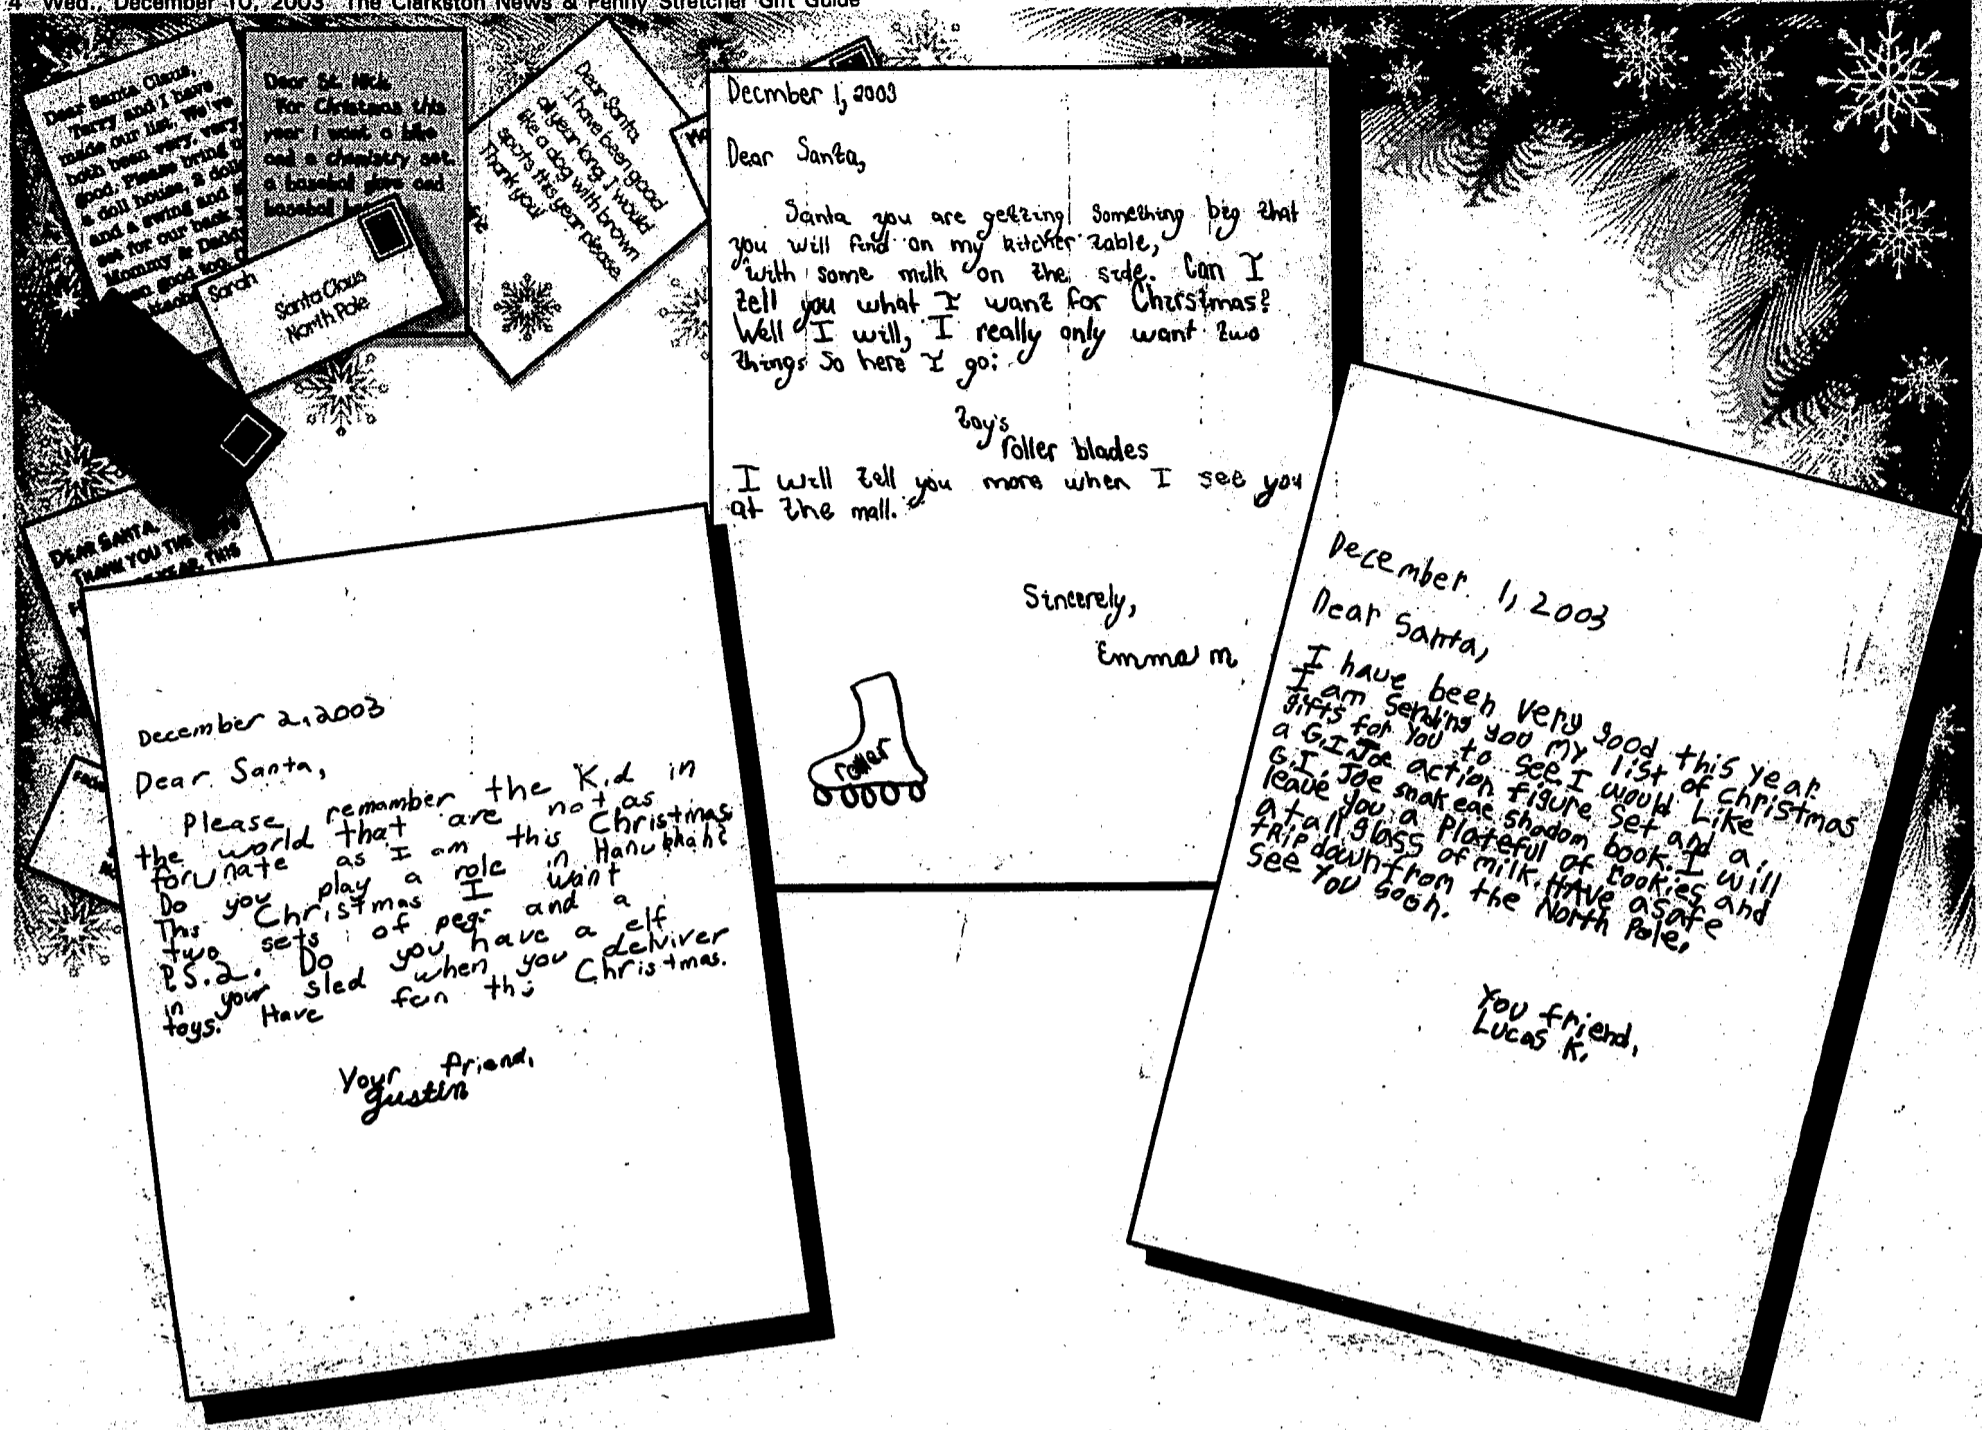 4 Wed., December 10, 2003 The Clarkston News & Penny Stretcher Gift Guide
Dear Santa Claus,
Terry and I have
made our list. We've
both been very, very
good. Please bring
a doll house, 2
and a swing and
set for our back
Mommy &
good too.
Dear St. Nick
For Christmas this
year I want a bike
and a chemistry set.
a baseball glove and
baseball
Dear Santa
I have been good
all year long. I would
like a dog with brown
spots this year please.
Thank you!
Sarah
Santa Claus
North Pole
DEAR SANTA,
THANK YOU
YEAR. THIS
Decmber 1, 2003
Dear Santa,
Santa you are getting something big that
you will find on my kitcher table,
with some milk on the side. Can I
tell you what I want for Christmas?
Well I will, I really only want two
things so here I go:
toy's
roller blades
I will tell you more when I see you
at the mall.
Sincerely,
Emma m
roller
December 2, 2003
Dear Santa,
Please remamber the Kid in
the world that are not as
forunate as I am this Christmas
Do you play a role in Hanukkah?
This Christmas I want
two sets of pegs and a
P.S.2. Do you have a elf
in your sled when you delviver
toys. Have fun this Christmas.
Your friend,
Justin
December 1, 2003
Dear Santa,
I have been very good this year
I am sending you my list of christmas
gifts for you to see. I would like
a G.I. Joe action figure set and a
G.I. Joe snake eae shadom book. I will
leave you a Plateful of cookies and
a tall glass of milk. HAVE a safe
trip down from the North Pole.
See you soon.
You friend,
Lucas K.